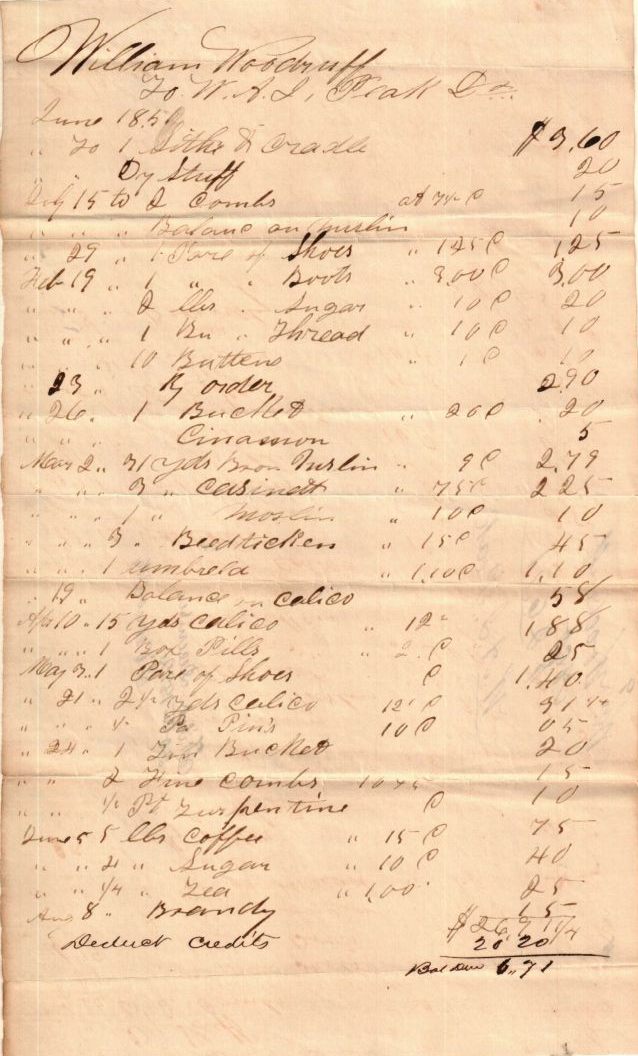 William Woodruff
To W. A. J. Peak Dr
June 185
" To 1 Sithe & Cradle $3,60
Dy Stuff 20
July 15 to 2 Combs at 7½ C 15
" " " Balanc on Muslin 10
" 29 " 1 Pare of Shoes " 125 C 125
Feb 19 " 1 " " Boots " 300 C 3,00
" " " 2 lbs " Sugar " 10 C 20
" " " 1 Bu " Thread " 10 C 10
" " 10 Buttens " 1 C 10
23 By order 290
" 26 " 1 Bucket " 20 C 20
" " " Cinamon 5
Mar 2 " 31 yds Bron Muslin " 9 C 2,79
" " " 3 " Casinett " 75 C 225
" " " 1 " Moslin " 10 C 10
" " " 3 " Beedticken " 15 C 45
" " " 1 umbrela " 1,10 C 1,10
" 19 " Balance on Calico 58
Apr 10 " 15 yds Calico " 12 1,88
" " " 1 Box Pills " 2 C 25
May 3 " 1 Pare of Shoes C 1,40
" 21 " 2 ½ yds Calico 12 C 31 ¼
" " " ½ Pa Pins 10 C 05
" 24 " 1 Tin Bucket 20
" " 2 Fine Combs 15
" " ½ Pt Turpentine C 10
June 5 5 lbs Coffee " 15 C 75
" " 4 " Sugar " 10 C 40
" " ¼ " Tea " 1,00 25
Aug 8 " Brandy 15
$26,91 ¼
Deduct Credits 20,20
Balance 6,71